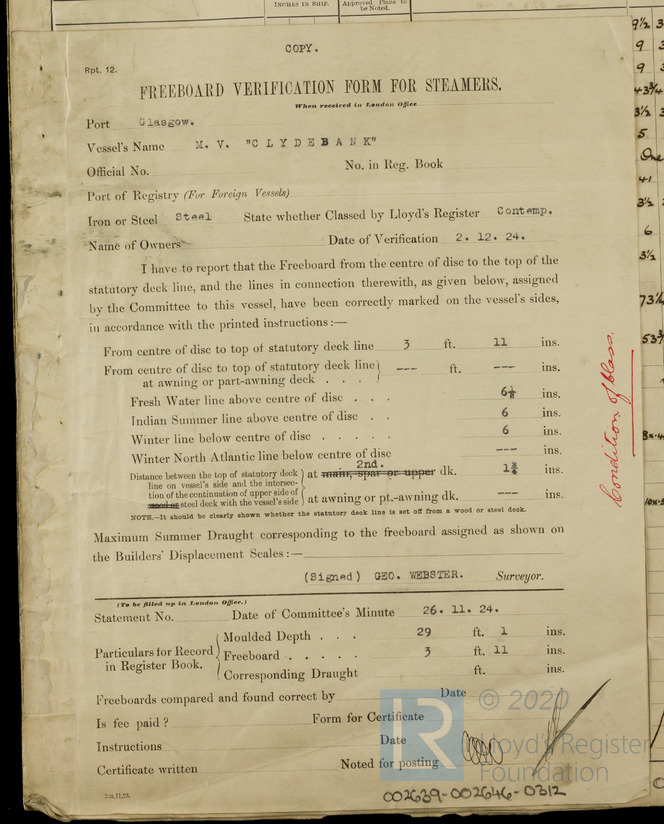 INCHES IN SHIP.
Approved Plans to
be Noted.
COPY.
Rpt. 12.
FREEBOARD VERIFICATION FORM FOR STEAMERS.
When received in London Office
Port Glasgow.
Vessel's Name M. V. "CLYDEBANK"
Official No. No. in Reg. Book
Port of Registry (For Foreign Vessels)
Iron or Steel Steel State whether Classed by Lloyd's Register Contemp.
Name of Owners Date of Verification 2. 12. 24.
I have to report that the Freeboard from the centre of disc to the top of the
statutory deck line, and the lines in connection therewith, as given below, assigned
by the Committee to this vessel, have been correctly marked on the vessel's sides,
in accordance with the printed instructions:—
From centre of disc to top of statutory deck line 3 ft. 11 ins.
From centre of disc to top of statutory deck line
at awning or part-awning deck . . . --- ft. --- ins.
Fresh Water line above centre of disc . . . 6½ ins.
Indian Summer line above centre of disc . . 6 ins.
Winter line below centre of disc . . . . . 6 ins.
Winter North Atlantic line below centre of disc --- ins.
Distance between the top of statutory deck
line on vessel's side and the intersec-
tion of the continuation of upper side of
wood or steel deck with the vessel's side
2nd.
at main, spar or upper dk. ins.
at awning or pt.-awning dk. --- ins.
NOTE.—It should be clearly shown whether the statutory deck line is set off from a wood or steel deck.
Maximum Summer Draught corresponding to the freeboard assigned as shown on
the Builders' Displacement Scales:—
(Signed) GEO. WEBSTER. Surveyor.
(To be filled up in London Office.)
Statement No. Date of Committee's Minute 26. 11. 24.
Particulars for Record
in Register Book.
Moulded Depth . . . 29 ft. 1 ins.
Freeboard . . . . . 3 ft. 11 ins.
Corresponding Draught ft. ins.
Freeboards compared and found correct by Date
Is fee paid? Form for Certificate
Instructions Date
Certificate written Noted for posting
2m,11,23.
002639-002646-0312
Condition of Class.
© 2020
LR
Lloyd's Register
Foundation
9½ 3
9
9
43¾
3½
5
One
41
3½
6
3½